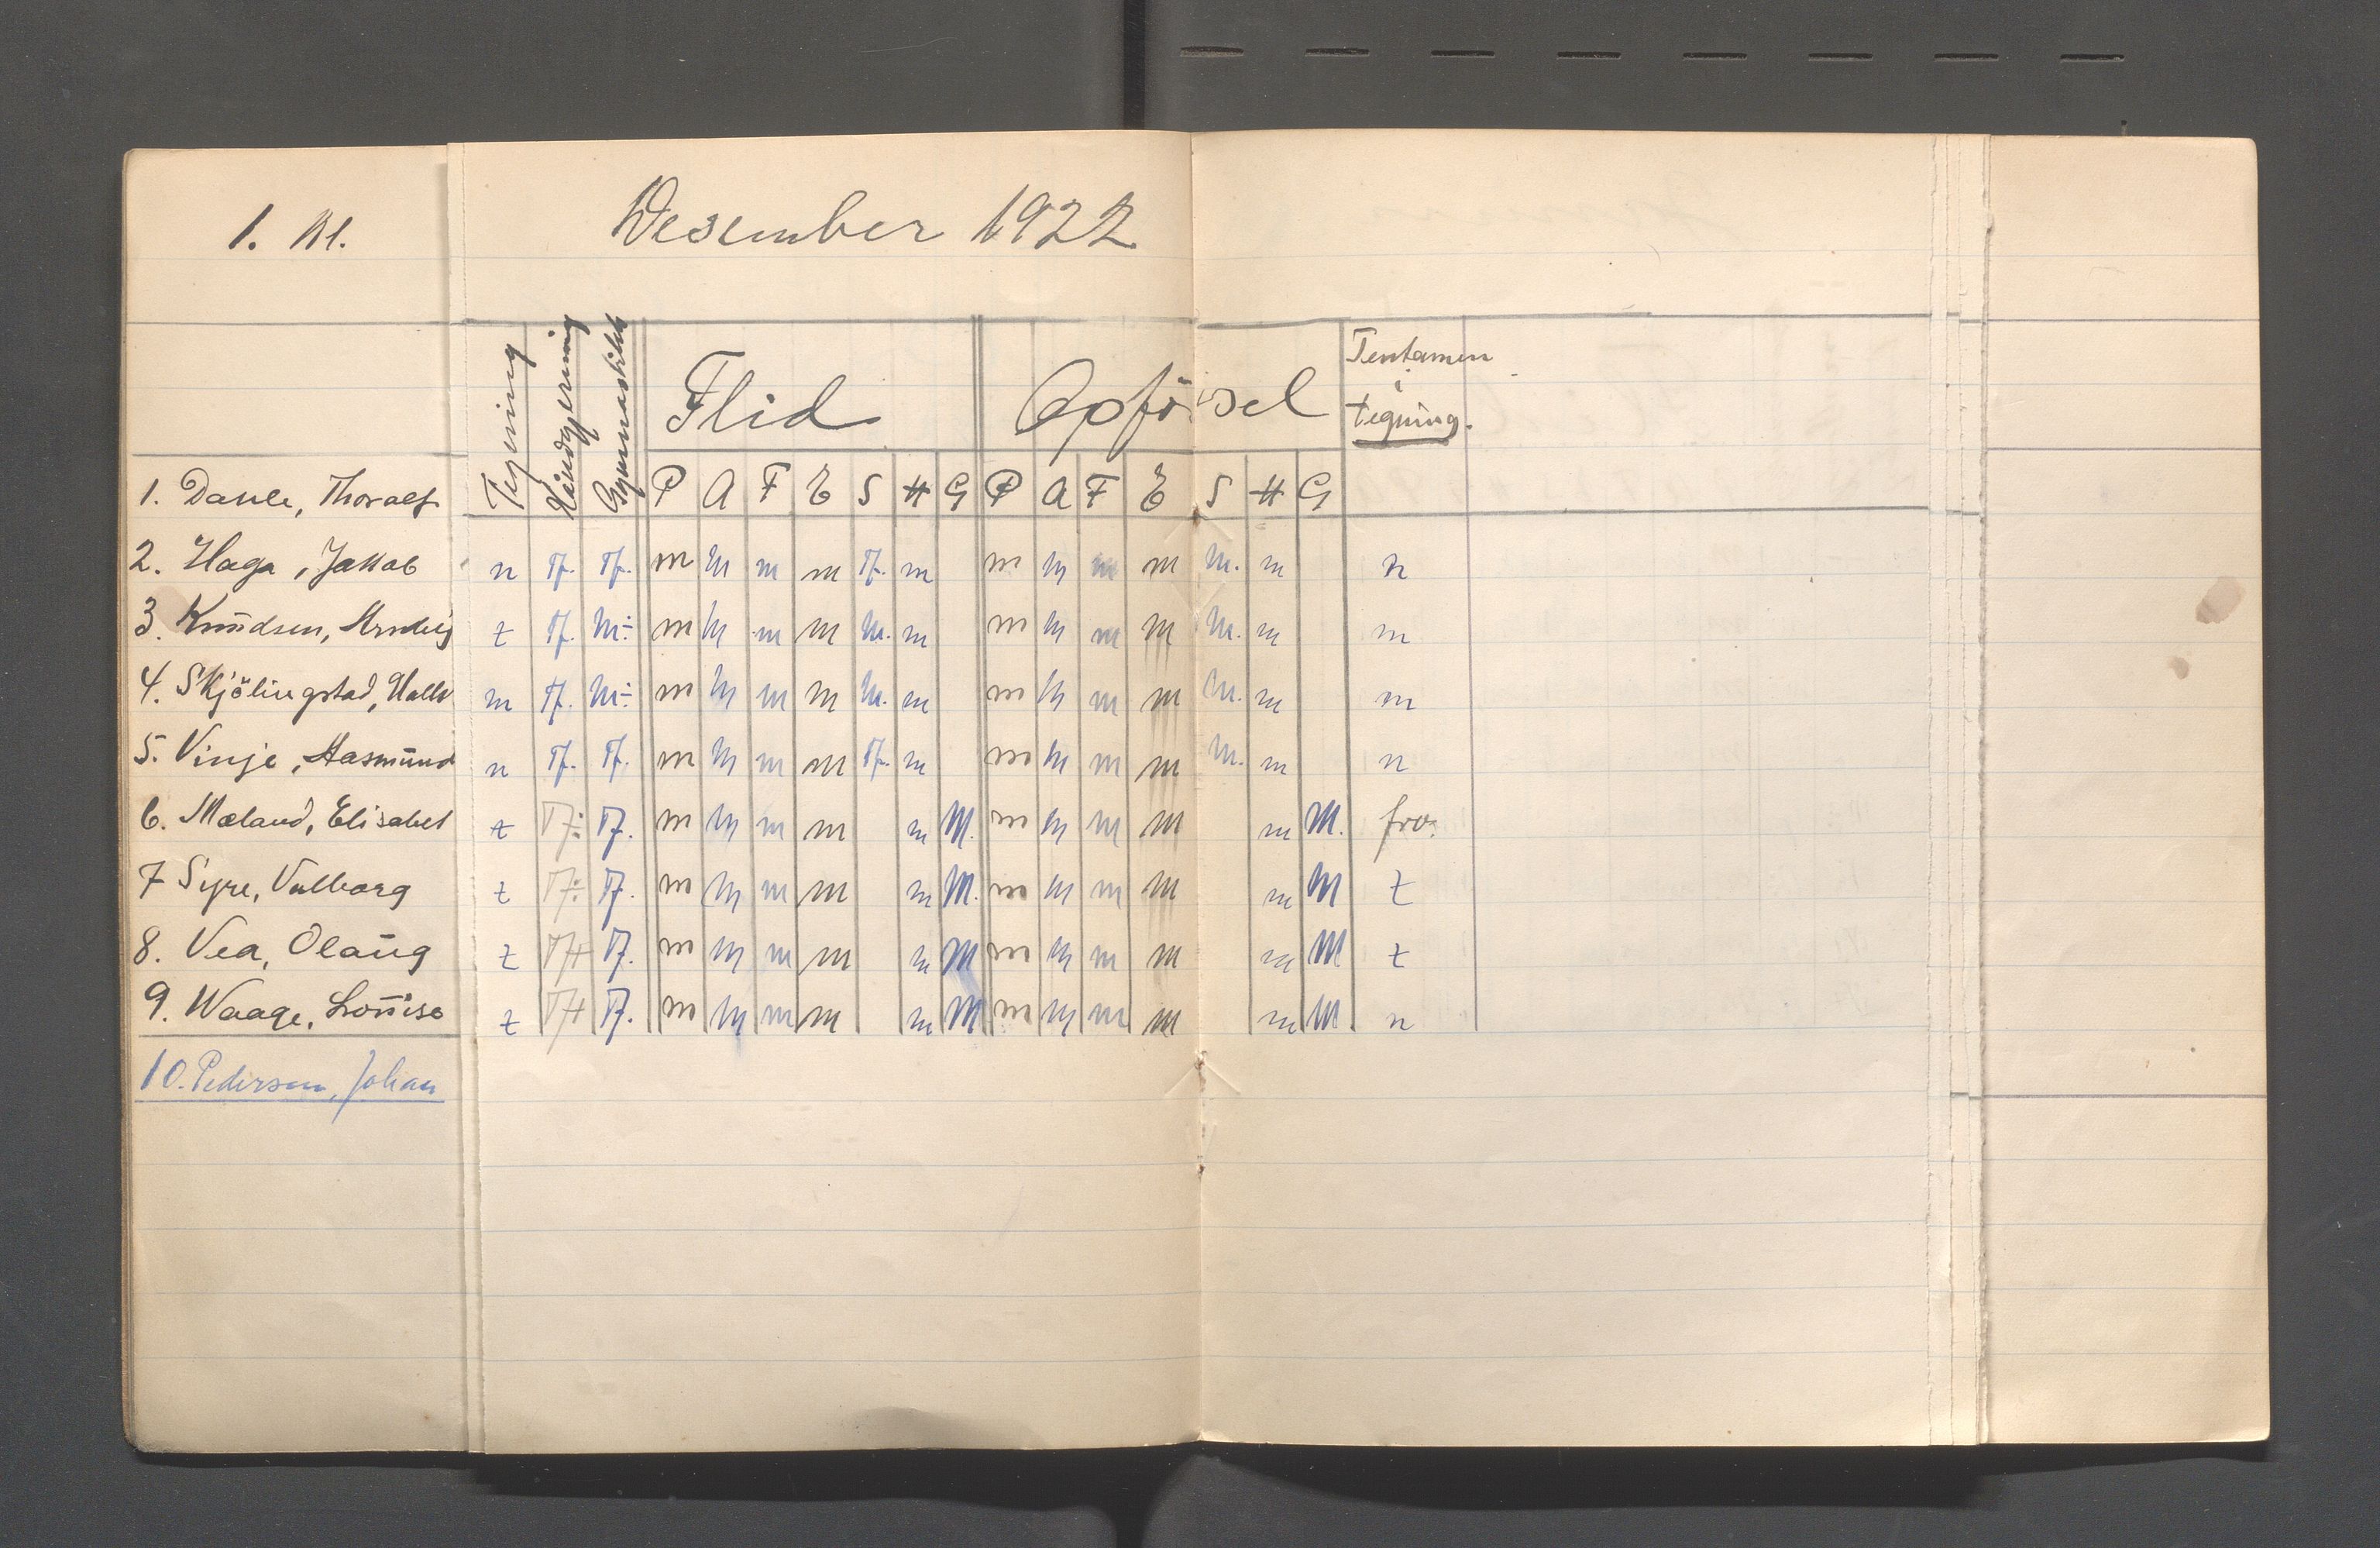 1. Kl.
Desember 1922
Tegning Håndgjerning Gymnastikk Flid Opförsel Tentamen
i
tegning.
1. Danle, Thoralf P A F E S H G P A F E S H G
2. Haga, Jakob n Tf. Tf. m M m m Tf. m m M m m M. m n
3. Knūdsen, t Tf. M÷ m M m m M. m m M m m M. m m
4. Skjölingstad, Hallv m Tf. M÷ m M m m M. m m M m m M. m m
5. Vinje, Aasmūnd n Tf. Tf. m M m m Tf. m m M m m M. m n
6. Mæland, Elisabet t Tf÷ Tf. m M m m m M. m M m m m M. frv.
7 Syre, Valborg t Tf÷ Tf. m M m m m M. m M m m m M t
8. Vea, Olaūg t Tf+ Tf. m M m m m M m M m m m M t
9. Waage, Loūise t Tf+ Tf. m M m m m M m M m m m M n
10. Pedersen, Johan